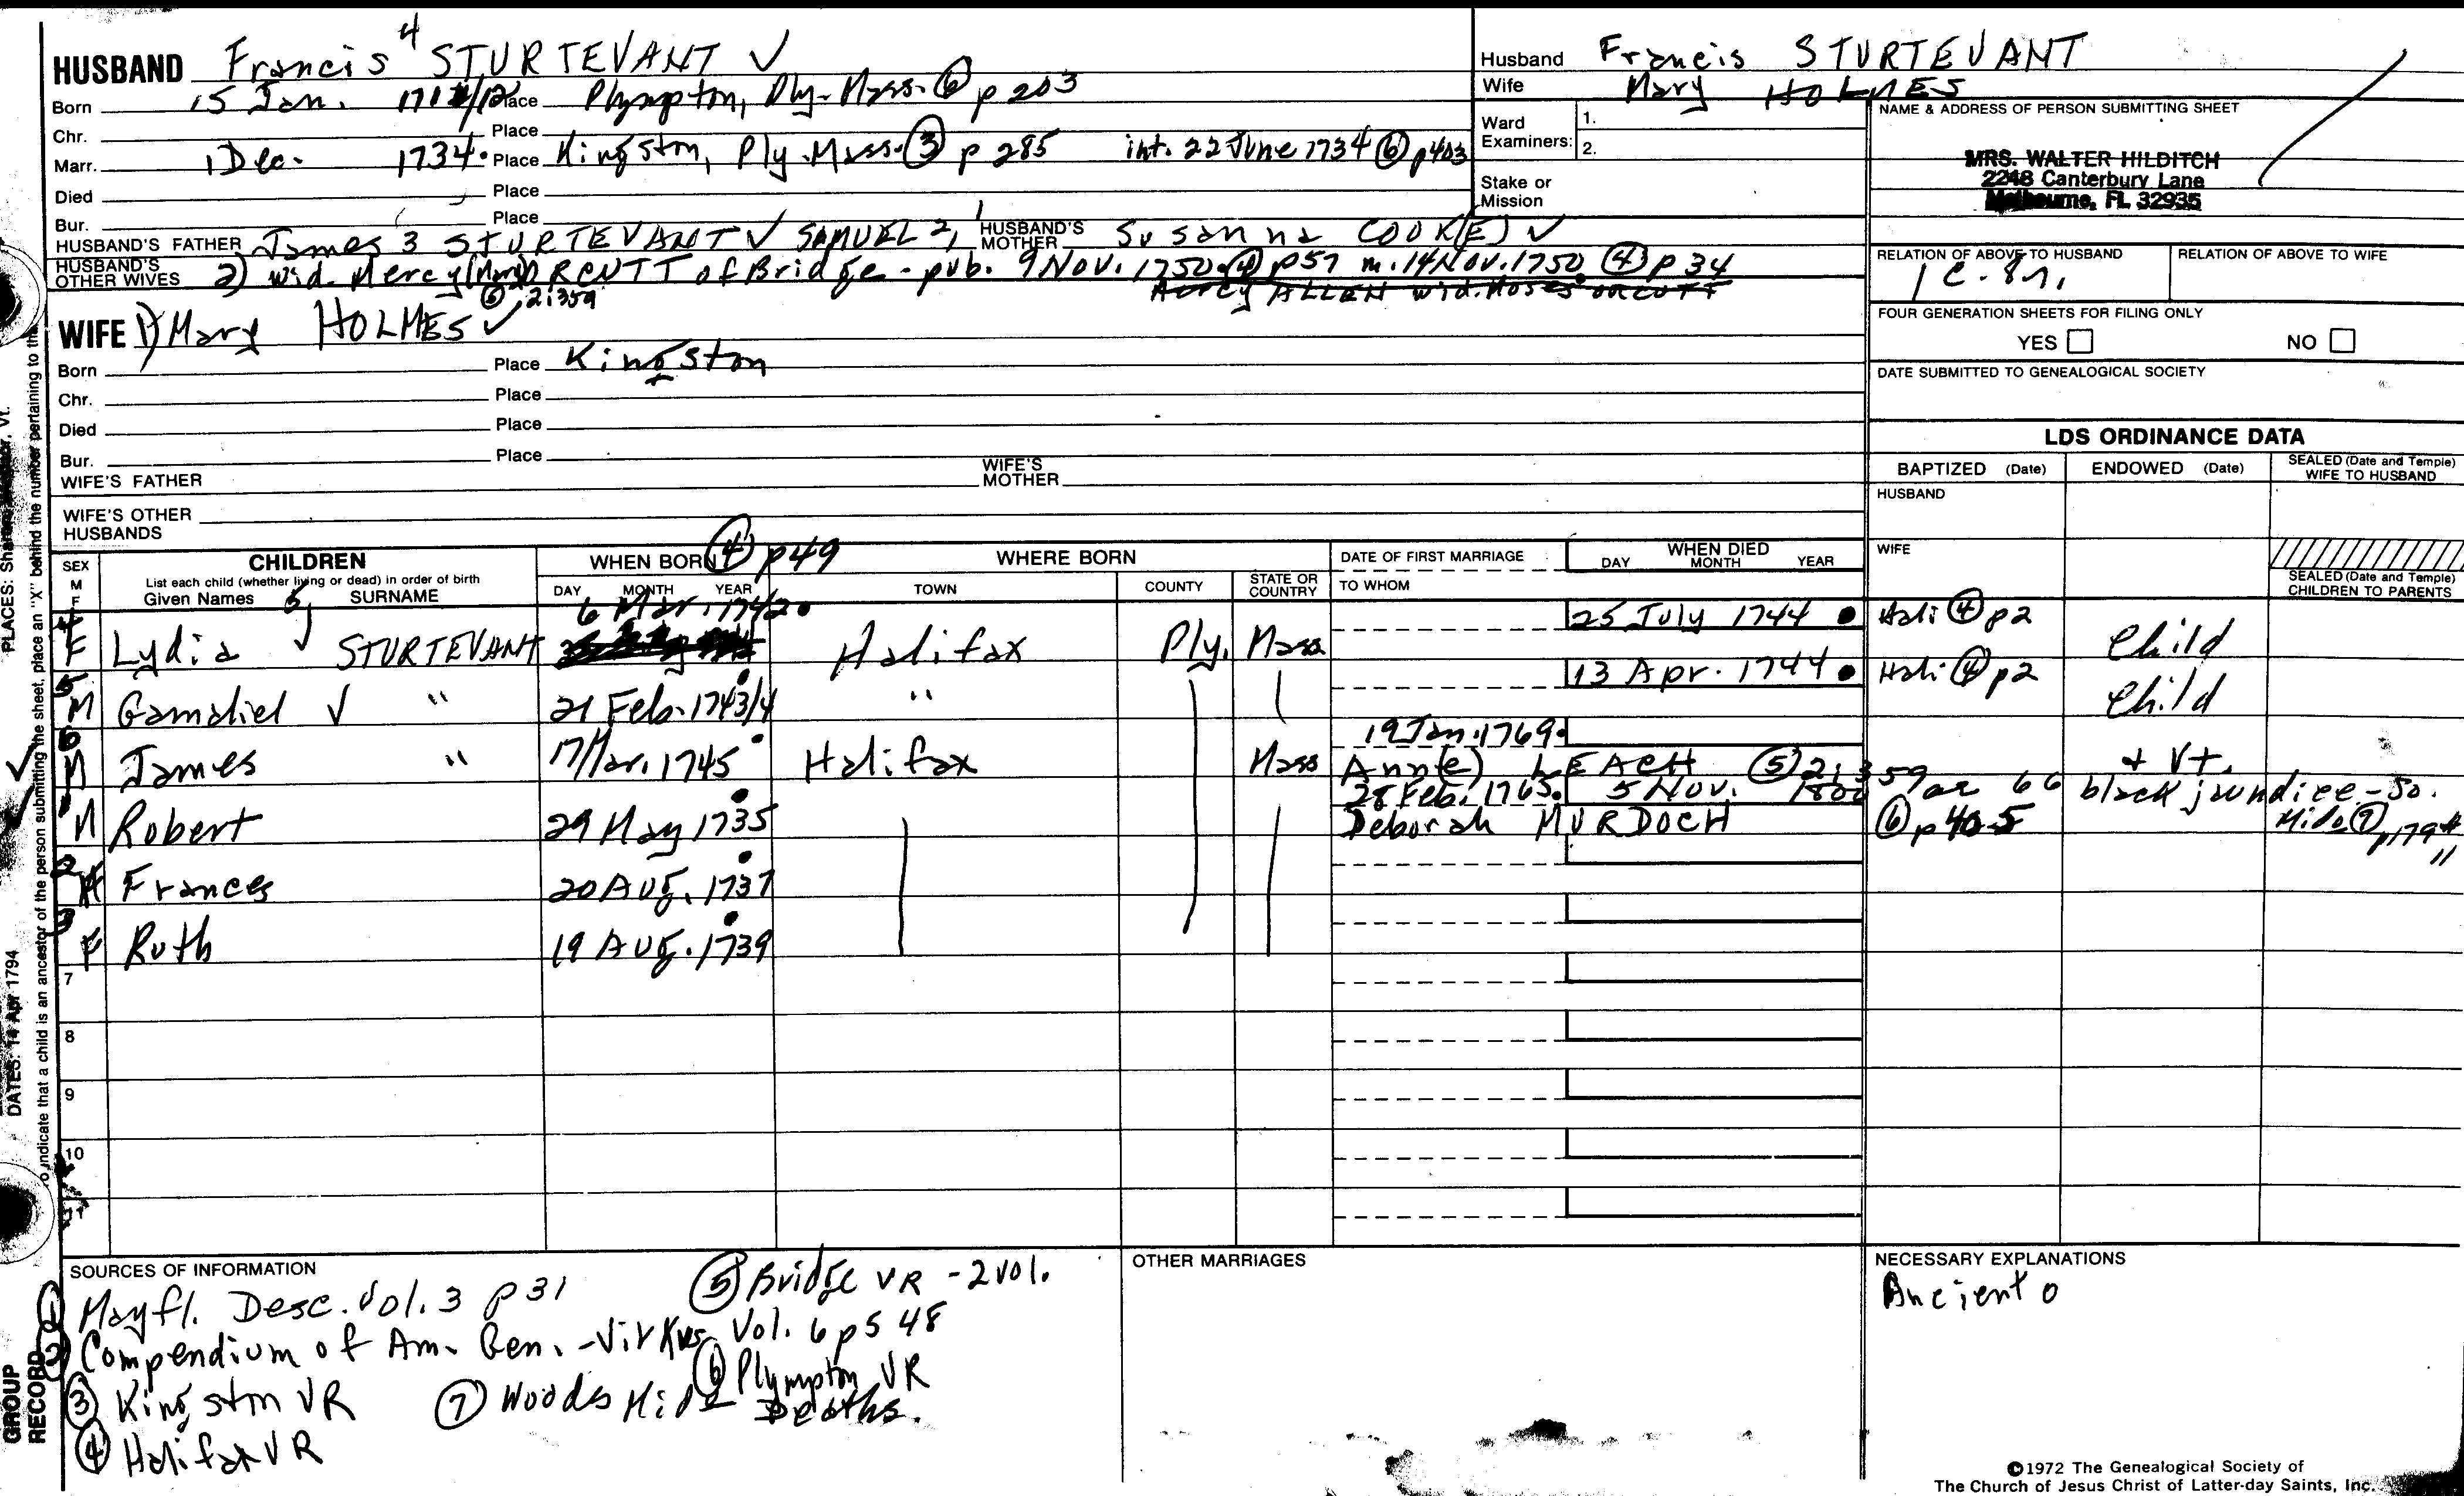 HUSBAND Francis 4 STURTEVANT ✓
Born 15 Jan. 1711/12 Place Plympton, Ply. Mass. ⑥ p 203
Chr. Place
Marr. 1 Dec. 1734. Place Kingston, Ply. Mass. ③ p 285 int. 22 June 1734 ⑥ p403
Died Place
Bur. Place
HUSBAND'S FATHER James 3 STURTEVANT ✓ SAMUEL 2, 1 HUSBAND'S MOTHER Susanna COOK(E) ✓
HUSBAND'S OTHER WIVES 2) wid. Mercy (Mary) ORCUTT of Bridge - pub. 9 Nov. 1750. ④ p57 m. 14 Nov. 1750 ④ p 34
⑤ 2:359 ALLEN wid. Moses ORCUTT
WIFE 1) Mary HOLMES ✓
Born Place Kingston
Chr. Place
Died Place
Bur. Place
WIFE'S FATHER WIFE'S MOTHER
WIFE'S OTHER HUSBANDS
Husband Francis STURTEVANT
Wife Mary HOLMES
Ward Examiners: 1.
2.
Stake or Mission
NAME & ADDRESS OF PERSON SUBMITTING SHEET
MRS. WALTER HILDITCH
2248 Canterbury Lane
Melbourne, FL 32935
RELATION OF ABOVE TO HUSBAND RELATION OF ABOVE TO WIFE
1 c. 8r.
FOUR GENERATION SHEETS FOR FILING ONLY
YES NO
DATE SUBMITTED TO GENEALOGICAL SOCIETY
LDS ORDINANCE DATA
BAPTIZED (Date) ENDOWED (Date) SEALED (Date and Temple) WIFE TO HUSBAND
HUSBAND
WIFE
SEALED (Date and Temple) CHILDREN TO PARENTS
SEX M F CHILDREN WHEN BORN ④ p49 WHERE BORN DATE OF FIRST MARRIAGE WHEN DIED
List each child (whether living or dead) in order of birth
Given Names 5 SURNAME DAY MONTH YEAR TOWN COUNTY STATE OR COUNTRY TO WHOM DAY MONTH YEAR
4 F Lydia ✓ STURTEVANT 6 Mar. 1742. Halifax Ply. Mass. 25 July 1744 Hali ④ p2 Child
5 M Gamaliel ✓ " 21 Feb. 1743/4 " 13 Apr. 1744 Hali ④ p2 Child
6 M James " 17 Mar. 1745 Halifax Mass 19 Jan. 1769. Ann(e) LEACH ⑤ 2:359 + Vt.
1 M Robert 29 May 1735 28 Feb. 1765. Deborah MURDOCH 5 Nov. 1800 ae 66 black jaundice - So. Mids ⑦ p179 # 11
⑥ p 405
2 Frances 20 Aug. 1737
3 F Ruth 19 Aug. 1739
7
8
9
10
11
SOURCES OF INFORMATION
① Mayfl. Desc. Vol. 3 p 31
② Compendium of Am. Gen. - Virkus Vol. 6 p 548
③ Kingston VR
④ Halifax VR
⑤ Bridge VR - 2 vol.
⑥ Plympton VR
⑦ Woods Mids Deaths.
OTHER MARRIAGES
NECESSARY EXPLANATIONS
Ancient o
©1972 The Genealogical Society of
The Church of Jesus Christ of Latter-day Saints, Inc.
PLACES: Vt.
DATES: 14 Apr 1794
To indicate that a child is an ancestor of the person submitting the sheet, place an "X" behind the number pertaining to
GROUP RECORD